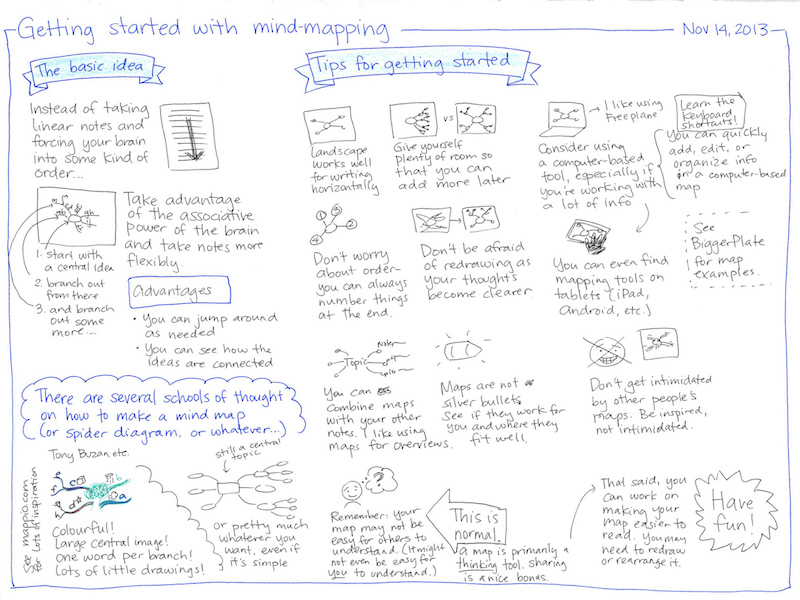 Getting started with mind-mapping
Nov 14, 2013
The basic idea
Instead of taking
linear notes and
forcing your brain
into some kind of
order...
Take advantage
of the associative
power of the brain
and take notes more
flexibly.
1. start with
a central idea
2. branch out
from there
3. and branch
out some
more...
Advantages
• You can jump around
as needed
• You can see how the
ideas are connected
There are several schools of thought
on how to make a mind map
(or spider diagram, or whatever...)
Tony Buzan etc.
See mappio.com
for lots of inspiration
Colourful!
Large central image!
one word per branch!
Lots of little drawings!
still a central
topic
or pretty much
whatever you
want, even if
it's simple
Tips for getting started
Landscape
works well
for writing
horizontally
vs
Give yourself
plenty of room so
that you can
add more later
I like using
Freeplane
Learn the
keyboard
shortcuts!
Consider using
a computer-based
tool, especially if
you're working with
a lot of info
You can quickly
add, edit, or
organize info
in a computer-based
map
1
2
3
4
Don't worry
about order-
you can always
number things
at the end.
Don't be afraid
of redrawing as
your thoughts
become clearer
You can even find
mapping tools on
tablets (iPad,
Android, etc.)
See
BiggerPlate
for map
examples.
Topic
You can
combine maps
with your other
notes. I like using
maps for overviews.
Maps are not
silver bullets.
See if they work for
you and where they
fit well.
Don't get intimidated
by other people's
maps. Be inspired,
not intimidated.
?
Remember: your
map may not be
easy for others to
understand. (It might
not even be easy for
you to understand.)
This is
normal.
A map is primarily a
thinking tool. Sharing
is a nice bonus.
That said, you
can work on
making your
map easier to
read. You may
need to redraw
or rearrange it.
Have
fun!